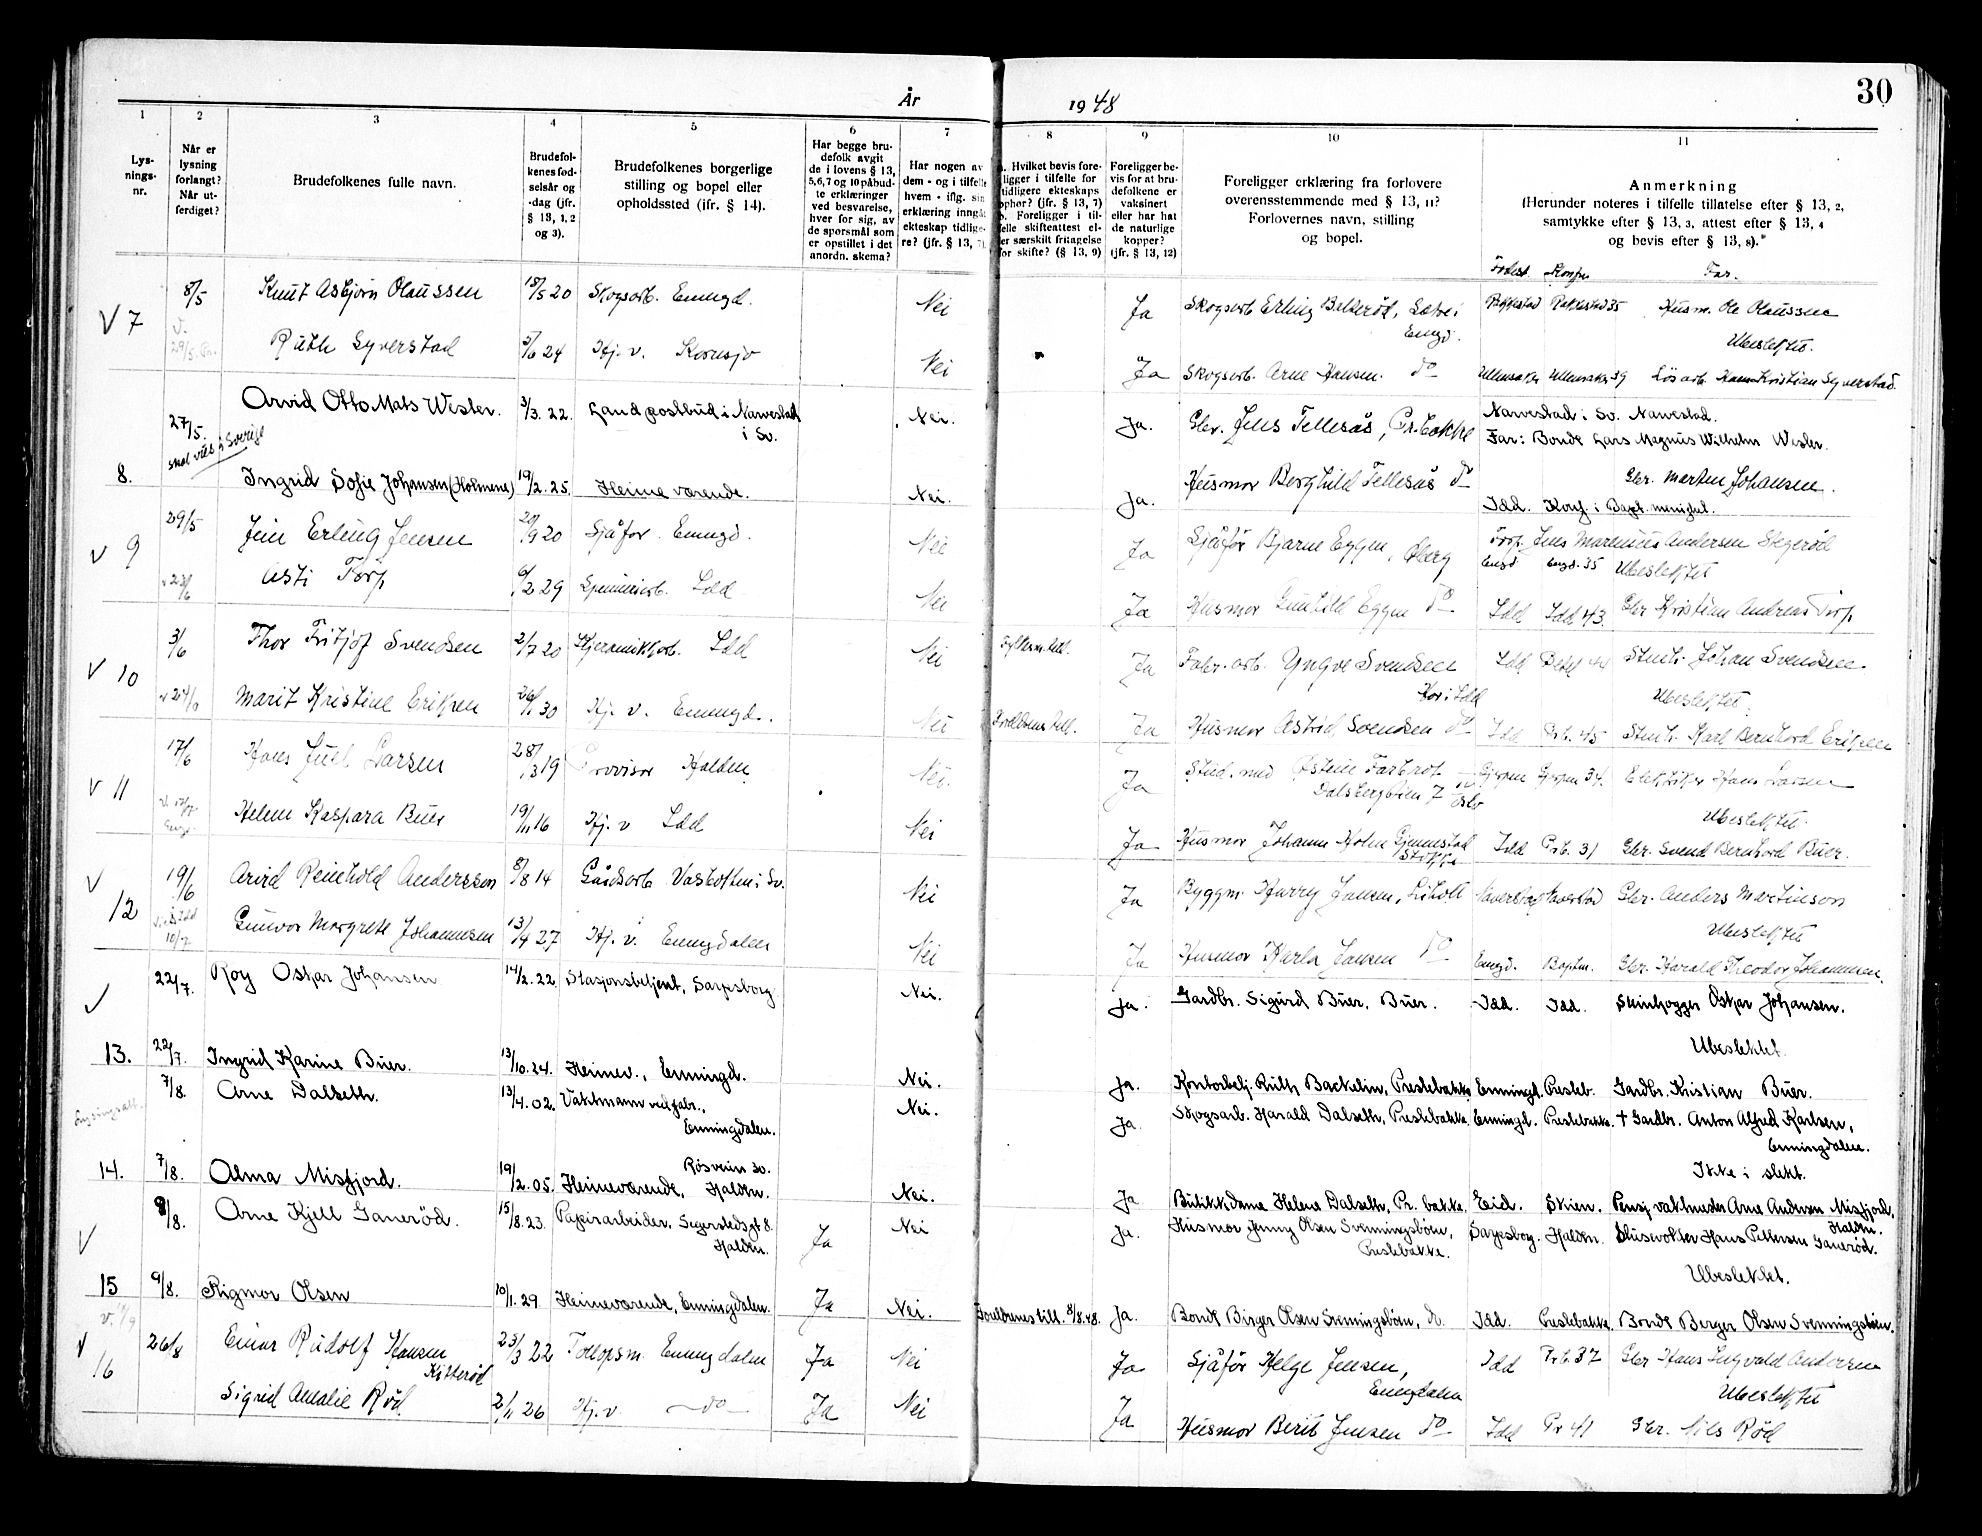 30
År 1948
1 2 3 4 5 6 7 8 9 10 11
Lys-
nings-
nr.
Når er
lysning
forlangt?
Når ut-
ferdiget?
Brudefolkenes fulle navn.
Brudefol-
kenes fød-
selsår og
-dag (jfr.
§ 13, 1, 2
og 3).
Brudefolkenes borgerlige
stilling og bopel eller
opholdssted (ifr. § 14).
Har begge bru-
defolk avgit
de i lovens § 13,
5,6,7 og 10 påbud-
te erklæringer
ved besvarelse,
hver for sig, av
de spørsmål som
er opstillet i det
anordn. skema?
Har nogen av
dem - og i tilfelle
hvem - iflg. sin
erklæring inngåt
ekteskap tidlige-
re? (jfr. § 13, 7).
a. Hvilket bevis fore-
ligger i tilfelle for
tidligere ekteskaps
ophør? (jfr. § 13, 7)
b. Foreligger i til-
felle skifteattest el-
er særskilt fritagelse
for skifte? (§ 13, 9)
Foreligger be-
vis for at bru-
defolkene er
vaksinert
eller har hat
de naturlige
kopper?
(jfr. § 13, 12)
Foreligger erklæring fra forlovere
overensstemmende med § 13, 11?
Forlovernes navn, stilling
og bopel.
Anmerkning
(Herunder noteres i tilfelle tillatelse efter § 13, 2,
samtykke efter § 13, 3, attest efter § 13, 4
og bevis efter § 13, 8).*
Fødest. Konf. Far.
V 7 8/5 Knut Asbjørn Olaussen 18/5 20 Skogsarb. Enningd. Nei Ja Skogsarb Erling Bakkerød, Sætre i Rakkestad Rakkestad 35 Husm. Ole Olaussen
Enngd. Ubeslektet.
Ruth Syverstad 24 Hj. v. Kornsjø Nei Ja Skogsarb. Arne Hansen. do Ullensaker Ullensaker 39 Løsarb. Hans Kristian Syverstad.
8. 27/5. Arvid Otto Mats Wester. 3/3. 22. Landpostbud i Narvestad Nei. Ja. Gbr. Jens Tellesås, Pr.bakke Narvestad i Sv. Narvestad.
skal vies i Sverige i Sv. Far: Bonde Lars Magnus Wilhelm Wester.
Ingrid Sofie Johansen (Holmene) 19/2. 25. Heimeværende. Nei. Ja. Husmor Berghild Tellesås do Gbr. Marten Johansen.
Idd. Konf. i Bapt. menighet.
V 9 29/5 Jens Erling Jensen 20/9 20 Sjåfør. Enngd. Nei Ja Sjåfør Bjarne Eggen, Berg Torp Jens Marenius Andersen Skjerød
Enngd Enngd. 35 Ubeslektet
v 23/6 Asti Torp 6/2 29 Spinneriarb. Idd Nei Ja Husmor Gunhild Eggen do Idd Idd 43. Gbr Kristian Andreas Torp
V 10 3/6 Thor Fritjof Svendsen 2/7 20 Kjeramikkarb. Idd Nei Fylkesm. till. Ja Fabr. arb. Yngve Svendsen Idd Stenh. Johan Svendsen.
Kor i Idd Ubeslektet.
Marit Kristine Eriksen 26/1 30 Hj. v. Enningd. Nei Foreldrenes till. Ja Husmor Astrid Svendsen do Idd Prb. 45 Stenh. Karl Bernhard Eriksen
V 11 17/6 Hans Juel Larsen 28/3 19 Provisor Halden Nei. Ja Stud. med Østein Farbrot Gjerpen Gjerpen 34. Elektriker Hans Larsen
Dalsbergstien 7 Oslo Ubeslektet.
Helene Kaspara Buer 19/11 16 Hj. v Idd Nei Ja Husmor Johanne Holm Gjennestad Idd Prb. 31 Gbr. Svend Bernhard Buer.
Stokke
V 12 19/6 Arvid Reinhold Andersson 8/8 14 Gårdsarb Vasbotten i Sv. Nei Ja Byggm. Harry Jansen, Liholt Naverstad Naverstad Gbr. Anders Martinson
Ubeslektet
10/7 Gunvor Margrete Johannesen 13/4 27 Hj. v. Enngdalen Nei Ja Husmor Karla Jansen do Enngd. Baptm. Gbr. Harald Theodor Johannesen.
V 22/7. Roy Oskar Johansen 14/2. 22. Stasjonsbetjent, Sarpsborg Nei. Ja. Gardbr. Sigurd Buer, Buer. Idd. Idd. Steinhogger Oskar Johansen.
Ubeslektet.
13. 22/7. Ingrid Karine Buer. 13/10. 24. Heimev., Enningd. Nei. Ja. Kontorbetj. Ruth Backelin, Prestebakke Enningd. Presteb. Gardbr. Kristian Buer.
Lysingsatt. 7/8. Arne Dalseth. 13/4. 02. Vaktmann ved fabr., Nei. Ja. Skogsarb. Harald Dalseth, Prestebakke Enningd. Prestebakke. † Gardbr. Anton Alfred Karlsen,
Enningdalen. Enningdalen.
Ikke i slekt.
14. 7/8. Alma Misfjord. 19/2. 05. Heimeværende, Røsveien 30. Halden. Nei. Ja Butikkdame Helene Dalseth, Pr. bakke. Eid. Skien. Pensj. vaktmester Arne Andersen Misfjord,
Halden.
V 8/8. Arne Kjell Ganerød. 15/8. 23. Papirarbeider, Segerstedsgt 8. Ja Nei Ja. Husmor Jenny Olsen Svenningsbøen, Sarpsborg. Halden. Hans Pettersen Ganerød.
Halden. Prestebakke. Ubeslektet.
15 9/8. Rigmor Olsen 10/1. 29. Heimeværende, Enningdalen. Ja Nei. Foreldrenes till. 8/8. 48. Ja. Bonde Birger Olsen Svenningsbøen, do. Idd. Prestebakke. Bonde Birger Olsen Svenningsbøen.
V 16 26/8 Einar Rudolf Hansen 23/3 22 Tollopsm. Enningdalen Ja Nei Ja Sjåfør Helge Jensen, Idd Prb. 37 Gbr Hans Ingvald Andersen
Kitterød Enngdalen Ubeslektet
Sigrid Amalie Rød. 2/11 26 Hj. v do Ja Nei Ja Husmor Berit Jensen do Idd Pr 41 Gbr. Nils Rød